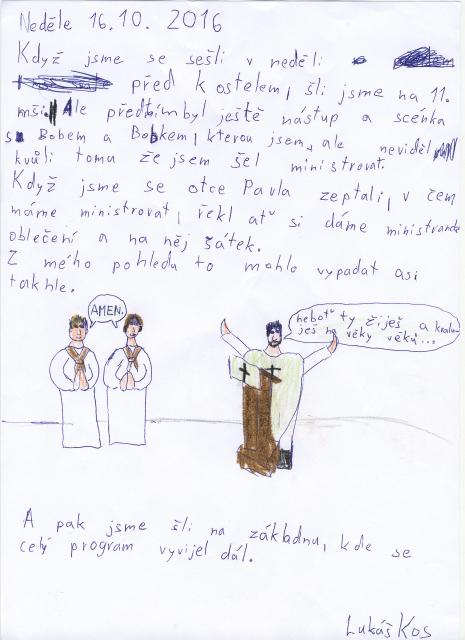 Neděle 16.10. 2016
Když jsme se sešli v neděli
před kostelem, šli jsme na 11.
mši. Ale předtím byl ještě nástup a scénka
s Bobem a Bobkem, kterou jsem, ale neviděl
kvůli tomu že jsem šel ministrovat.
Když jsme se otce Pavla zeptali, v čem
máme ministrovat, řekl ať si dáme ministrantské
oblečení a na něj šátek.
Z mého pohledu to mohlo vypadat asi
takhle.
AMEN.
neboť ty žiješ a kralu-
ješ na věky věků...
A pak jsme šli na základnu, kde se
celý program vyvijel dál.
Lukáš Kos